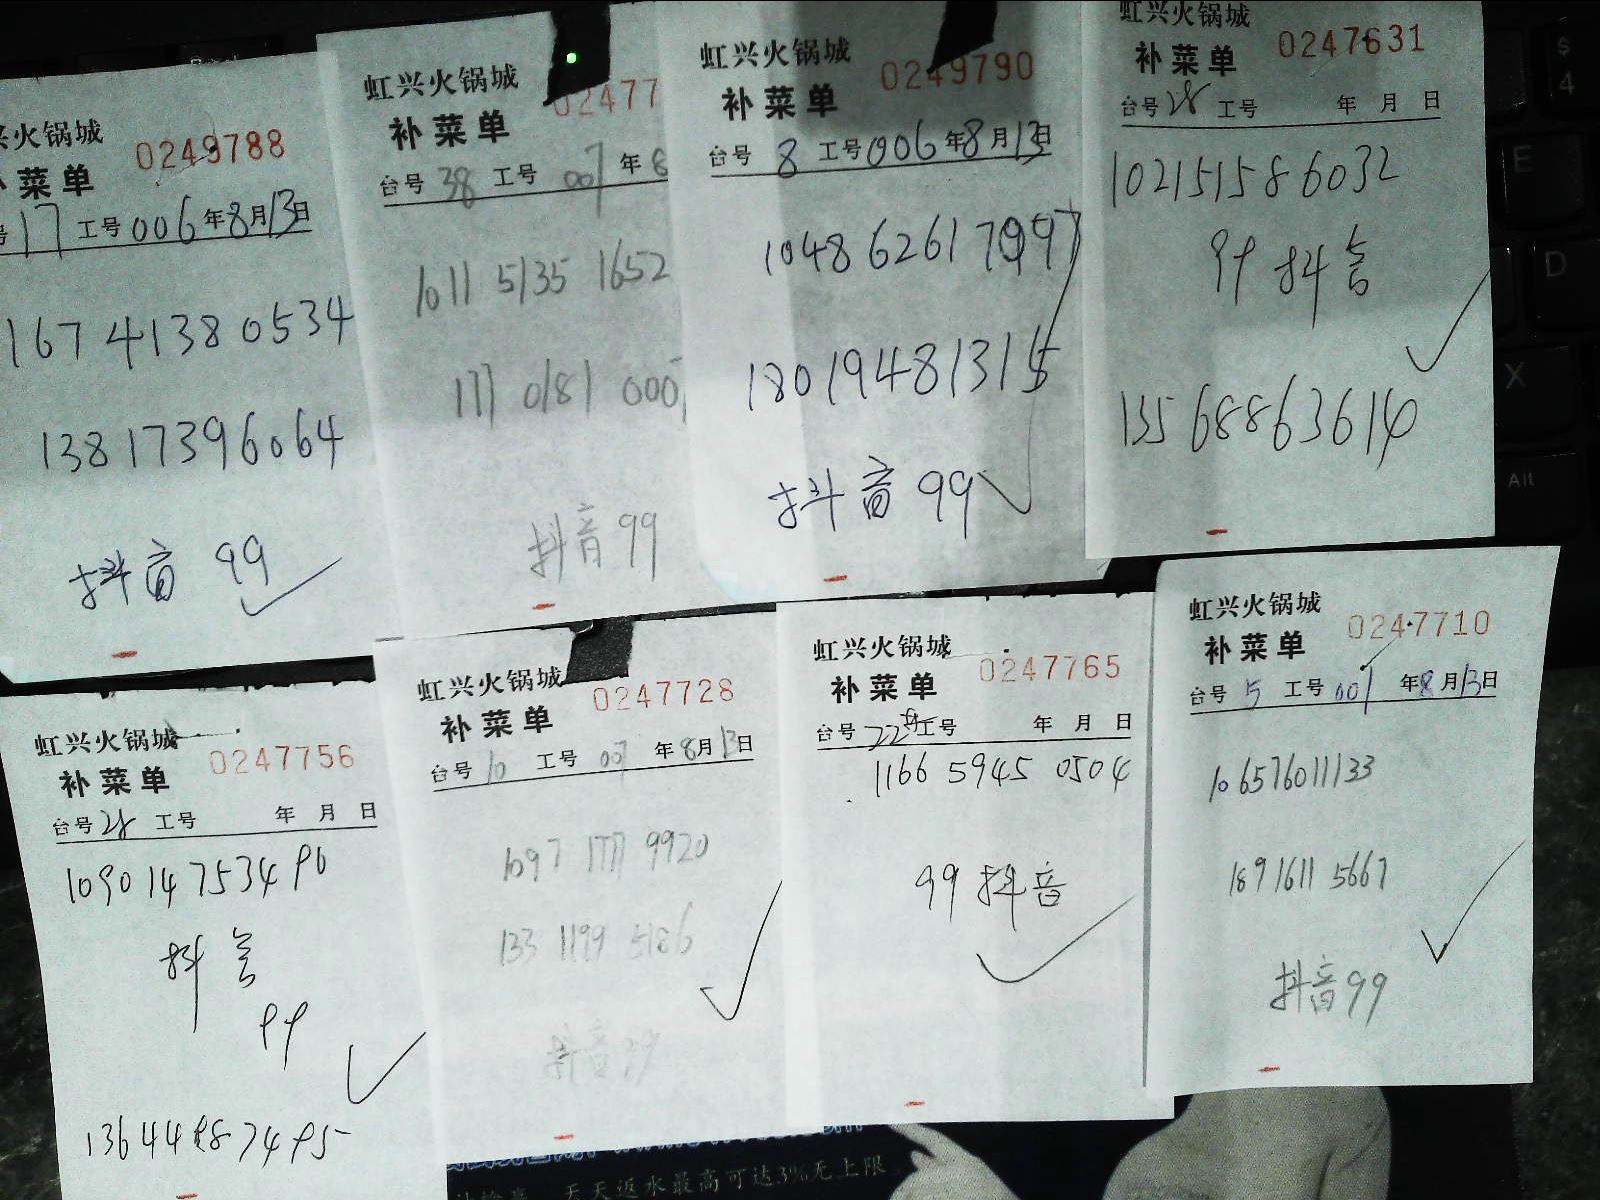 兴火锅城
菜单 0249788
号17 工号006年8月13日
16741380534
13817396064
抖音 99
虹兴火锅城
补菜单 02477
台号38 工号007 年8
1011 5135 1652
177 0181 000
抖音99
虹兴火锅城
补菜单 0249790
台号 8 工号006年8月13日
104862617997
18019481315
抖音99
虹兴火锅城
补菜单 0247631
台号28 工号 年 月 日
102151586032
99 抖音
13568863614
虹兴火锅城
补菜单 0247756
台号28 工号 年 月 日
109014753496
抖音
99
虹兴火锅城
补菜单 0247728
台号10 工号 007 年8月13日
1097 1777 9920
133 1199 5186
抖音99
虹兴火锅城
补菜单 0247765
台号22 工号 年 月 日
1166 5945 0504
99抖音
虹兴火锅城
补菜单 0247710
台号 15 工号 007 年8月13日
106576011133
189 1611 5667
抖音99
天天返水最高可达3%无上限